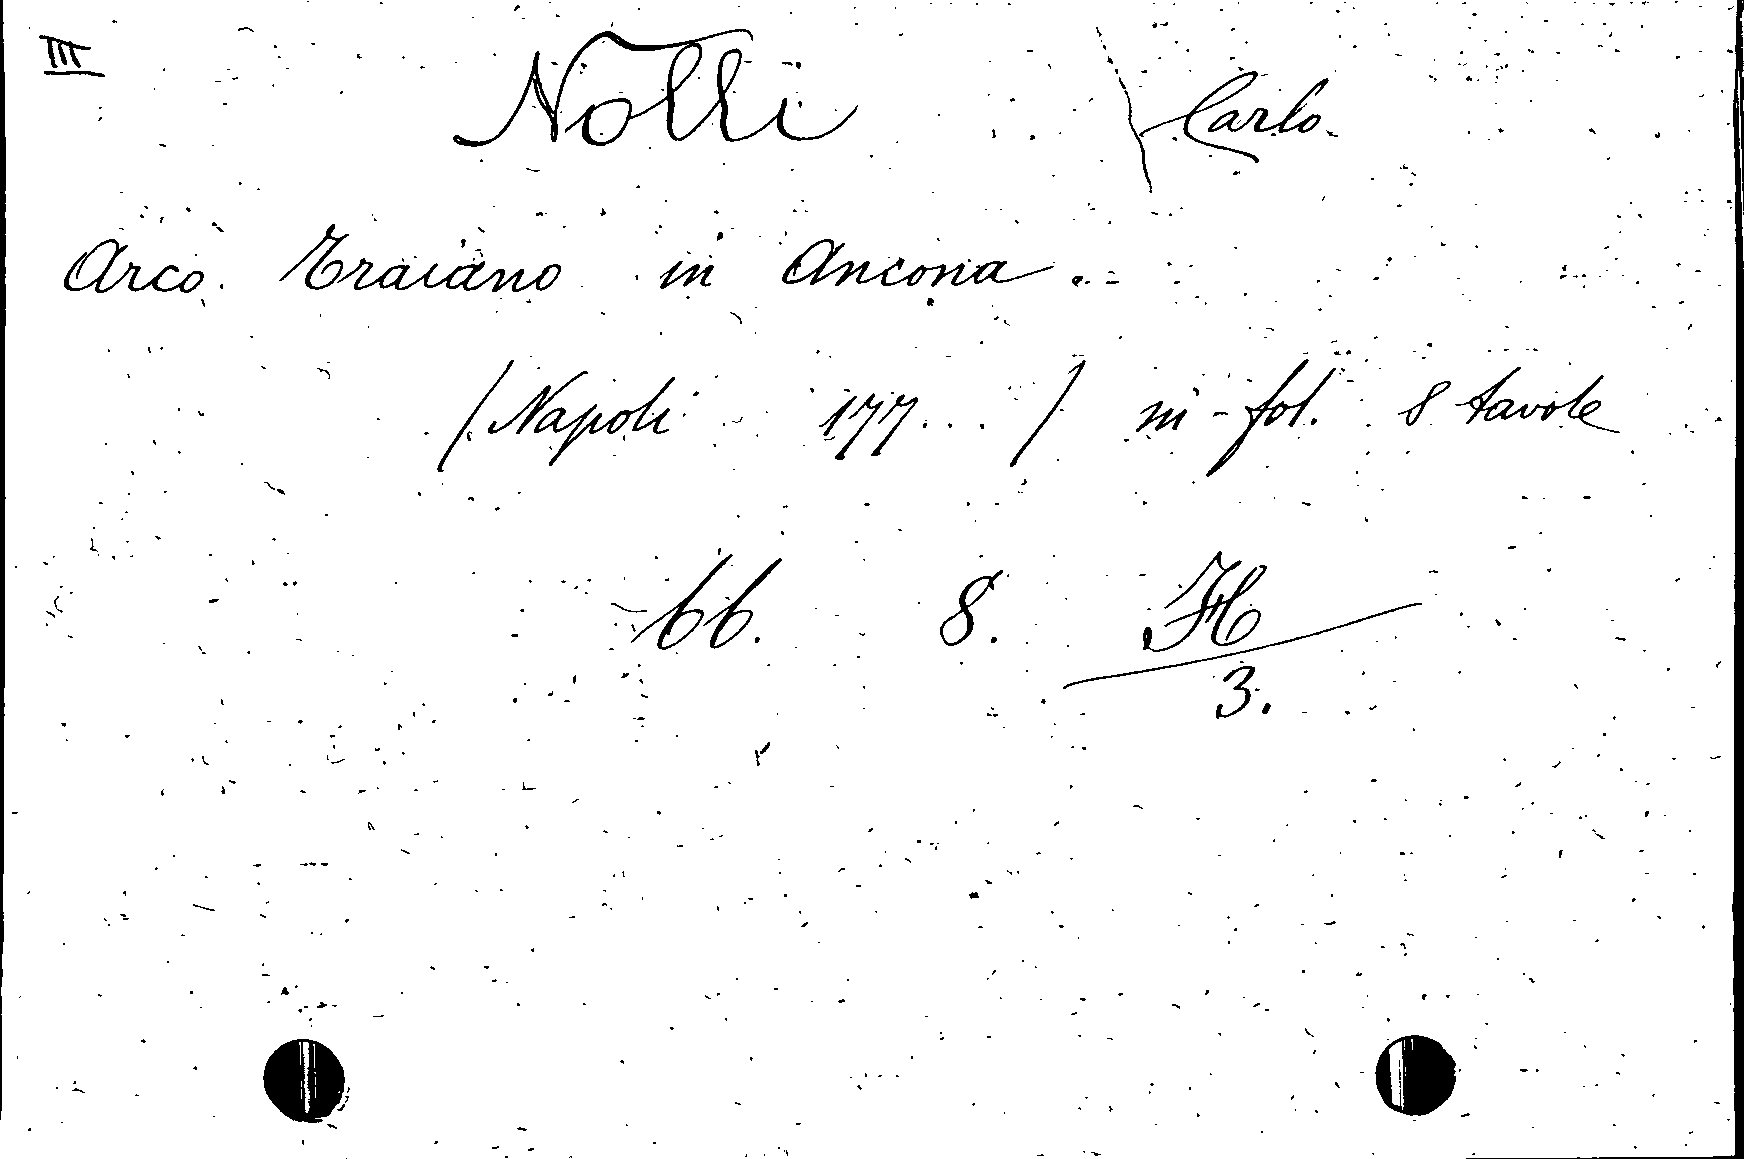 III
Nolli Carlo
Arco Traiano in Ancona.
(Napoli 177...) in-fol. 8 tavole
66. 8. H
3.